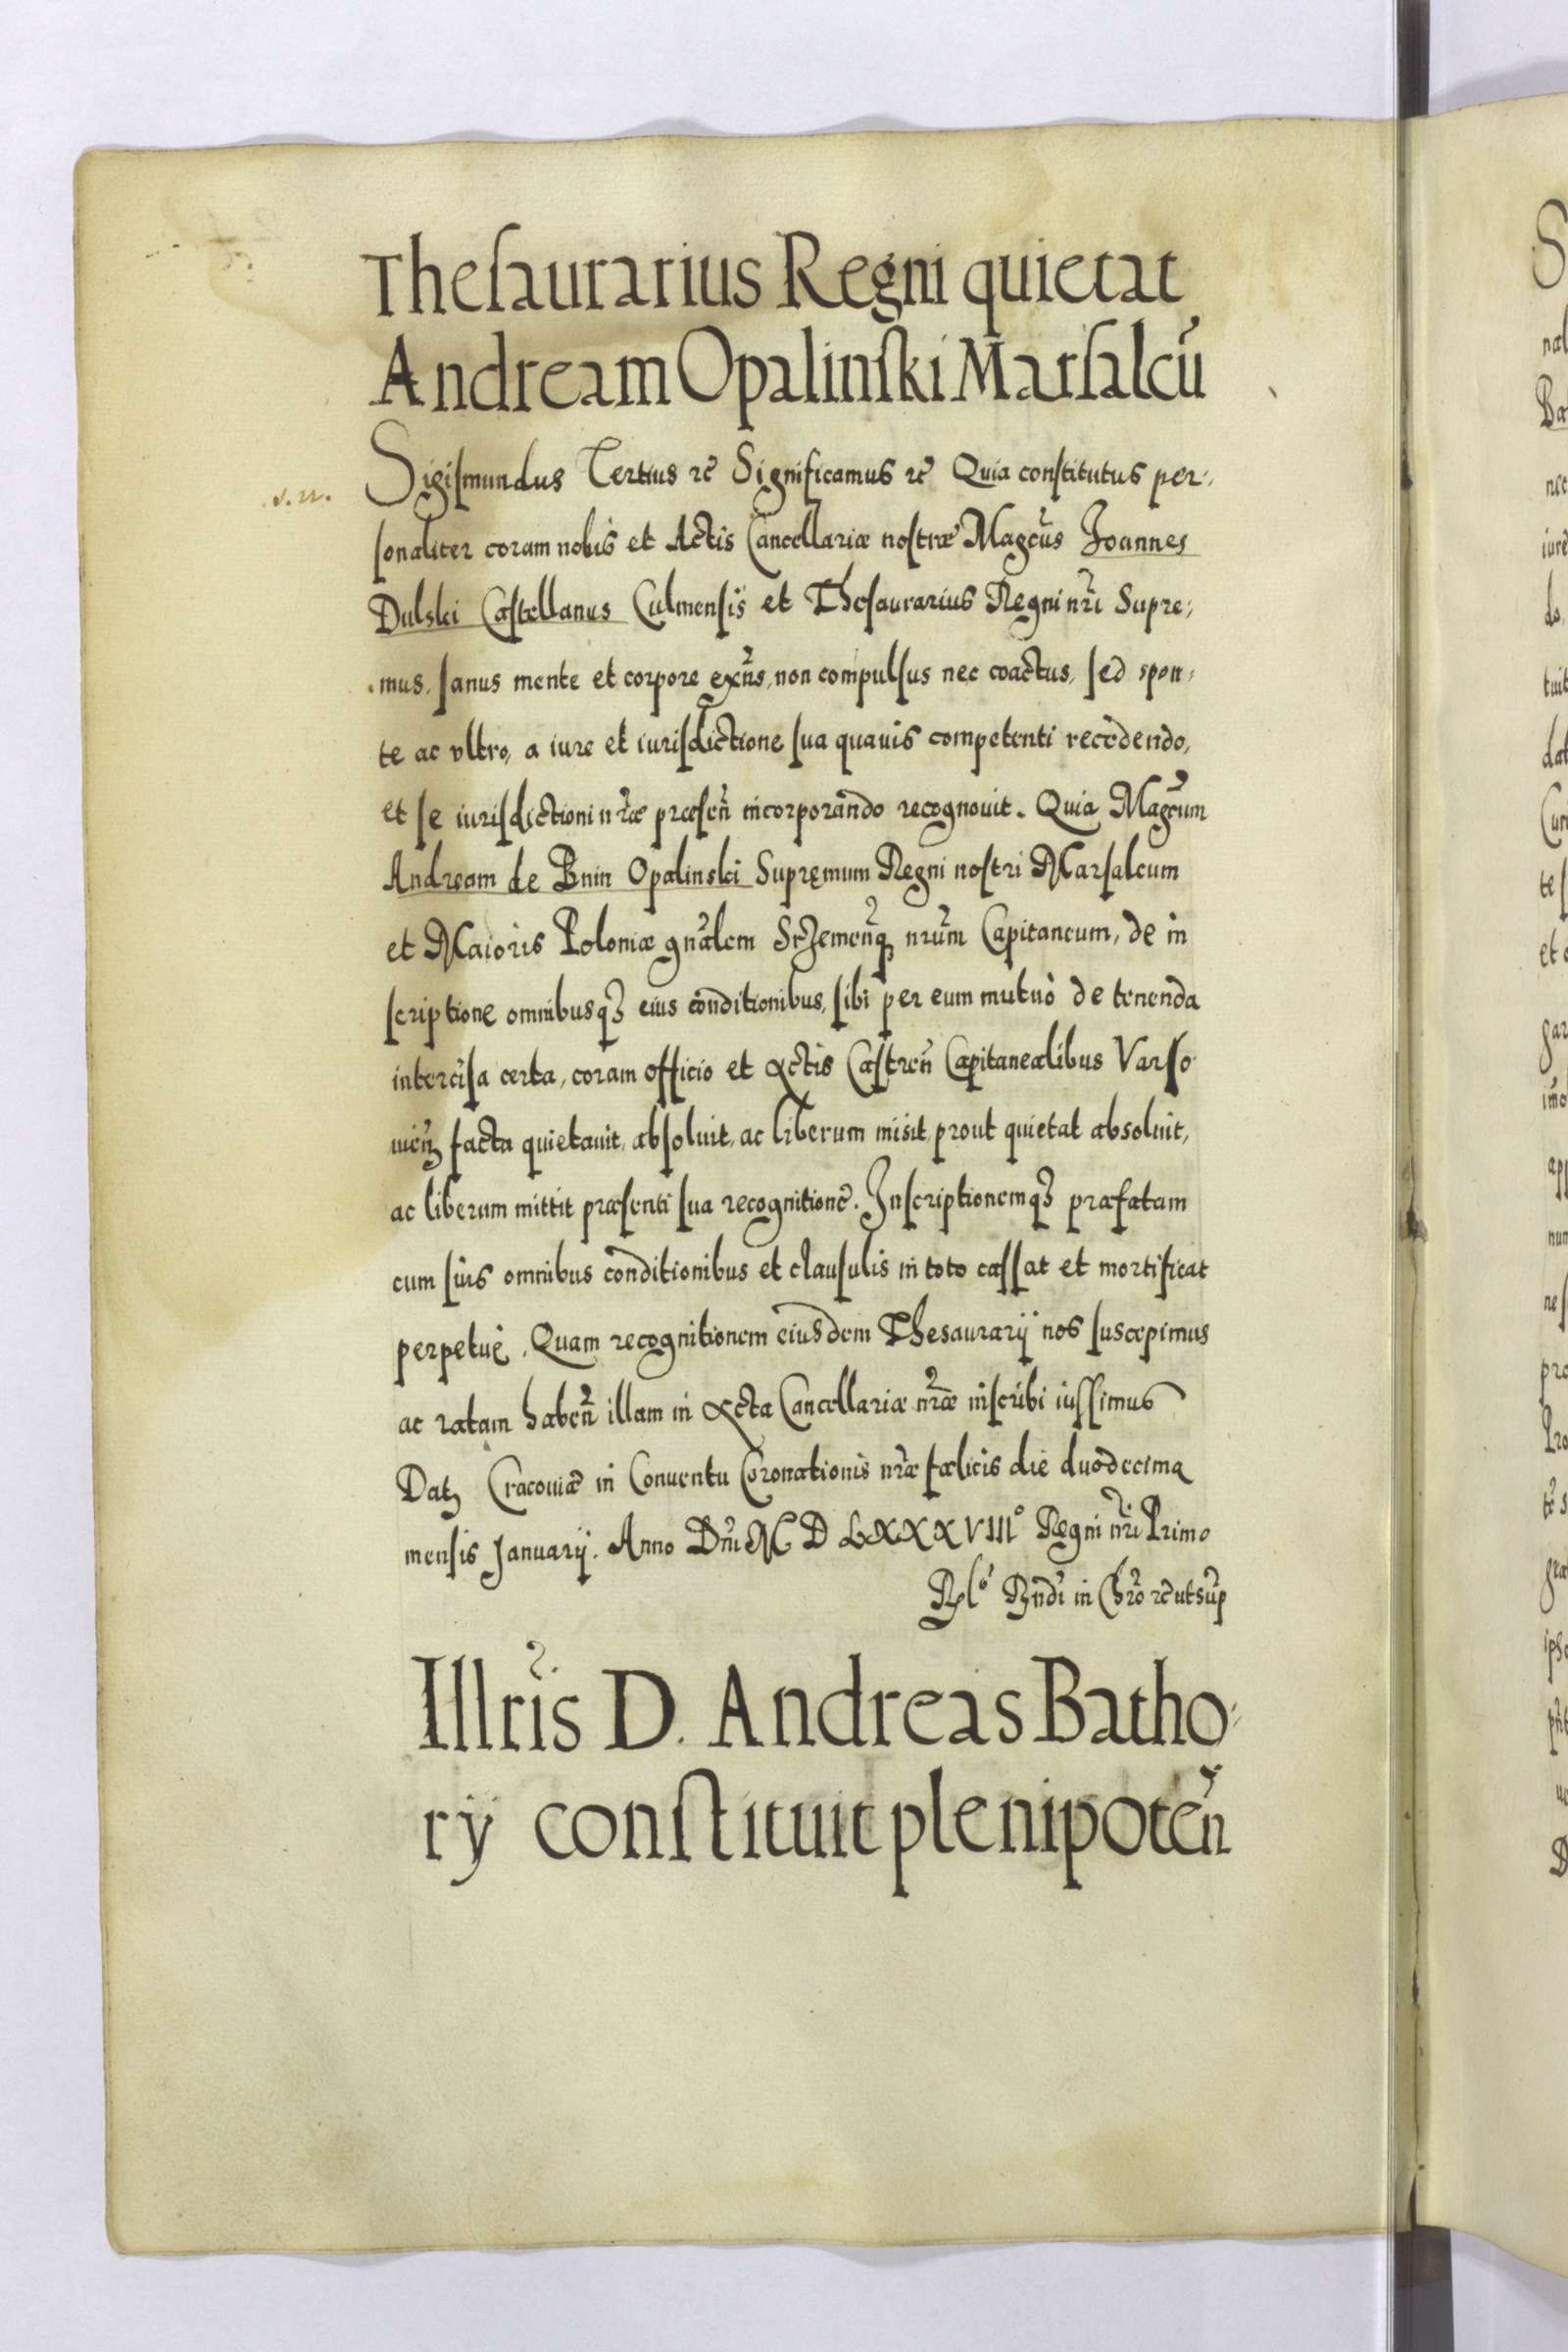 Theſaurarius Regni quietat
Andream Opalinſki Marſalcū
Sigiſmundus Tertius rc̃ Significamus rc̃ Quia conſtitutus per⸗
s. n.
ſonaliter coram nobis et Actis Cancellariæ noſtræ Magcũs Joannes
Dulski Caſtellanus Culmenſis et Theſaurarius Regni nr̃i Supre⸗
mus, ſanus mente et corpore exñs, non compulſus nec coactus, ſed spon⸗
te ac vltro, a iure et iuriſdictione ſua quauis competenti recedendo,
et ſe iuriſdictioni nr̃æ præſeñ incorporando recognouit. Quia Magcũm
Andream de Bnin Opalinski Supremum Regni noſtri Marſalcum
et Maioris Poloniæ gnãlem Srzemenq̃ nrũm Capitaneum, de in
ſcriptione omnibusqȝ eius conditionibus, ſibi per eum mutuò de tenenda
interciſa certa, coram officio et Actis Caſtreñ Capitanealibus Varſo
uieñ facta quietauit, abſoluit, ac liberum misit, prout quietat absoluit,
ac liberum mittit præſenti ſua recognitione. Inſcriptionemqȝ præfatam
cum ſuis omnibus conditionibus et clauſulis in toto caſſat et mortificat
perpetuè. Quam recognitionem eiusdem Thesaurarij nos ſuscepimus
ac ratam habeñ illam in Acta Cancellariæ nr̃æ inſcribi iuſſimus
Datȝ Cracouiæ in Conuentu Coronationis nr̃æ fælicis die duodecima
menſis Januarij. Anno Dñi M D LXXXVIIIº Regni nr̃i Primo
Rñdi in Chrõ rc̃ ut sup̃
Illr̃is D. Andreas Batho⸗
rÿ conſtituit plenipoteñ